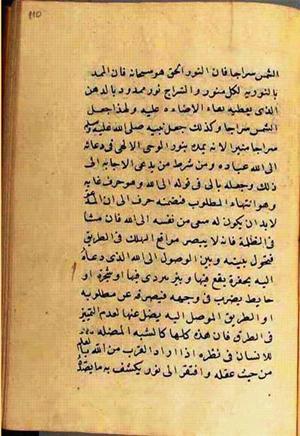 110
الشمس سراجا فان النور الحق هو سبحانه فان الممد
بالنورية لكل منور والسراج نور ممدود بالدهن
الذى يعطيه بقاء الاضاءه عليه ولهذا جعل
الشمس سراجا وكذلك جعل نبيه صلى الله عليه وسلم
سراجا منيرا لانه يمده بنور الوحى الالهى فى دعائه
الى الله عباده ومن شرط من يدعى الاجابة الى
ذلك وجعله بالى فى قوله الى الله وهو حرف غاية
وهو انتهاء المطلوب فضمنه حرف الى ان المدعو
لابد ان يكون له سعى من نفسه الى الله فان مشا
فى الظلمة فانه لا يبصر مواقع المهلك فى الطريق
فتحول بينه وبين الوصول الى الله الذى دعاه
اليه بحفرة يقع فيها وبير يتردى فيها او شجرة او
حايط يضرب فى وجهه فيصرفه عن مطلوبه
او الطريق الموصل اليه يضل عنها لعدم التمييز
فى الطرق فان هذه كلها كالشبه المضله
للانسان فى نظره اذا اراد القرب من الله بالعلم
من حيث عقله وافتقر الى نور يكشف به ما يصده